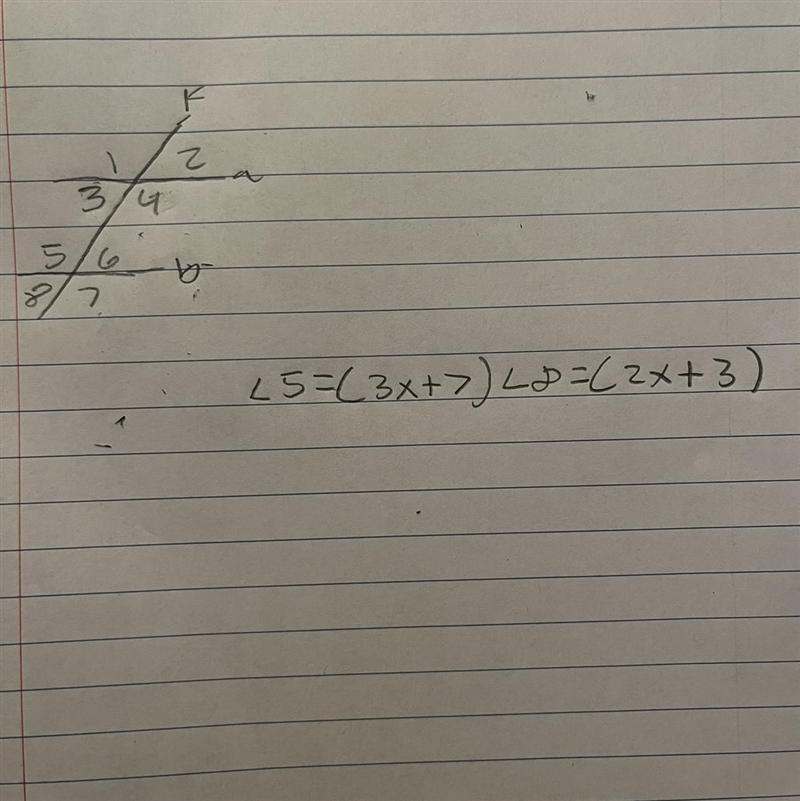 k
1 2 a
3 4
5 6 b
8 7
<5=(3x+7) <8=(2x+3)